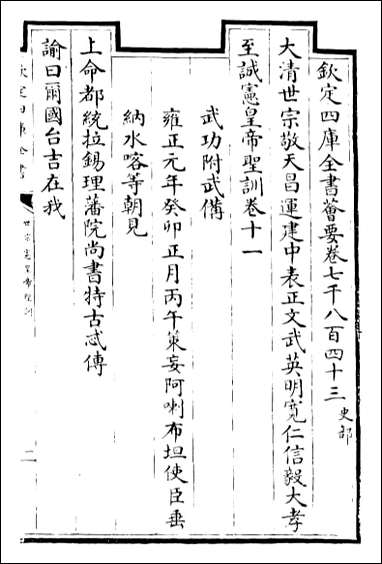 欽定四庫全書薈要卷七千八百四十三 史部
大清世宗敬天昌運建中表正文武英明寛仁信毅大孝
至誠憲皇帝聖訓卷十一
武功附武備
雍正元年癸卯正月丙午策妄阿喇布坦使臣垂
納水喀等朝見
上命都統拉錫理藩院尚書特古忒傳
諭曰爾國台吉在我
欽定四庫全書
世宗憲皇帝聖訓
二